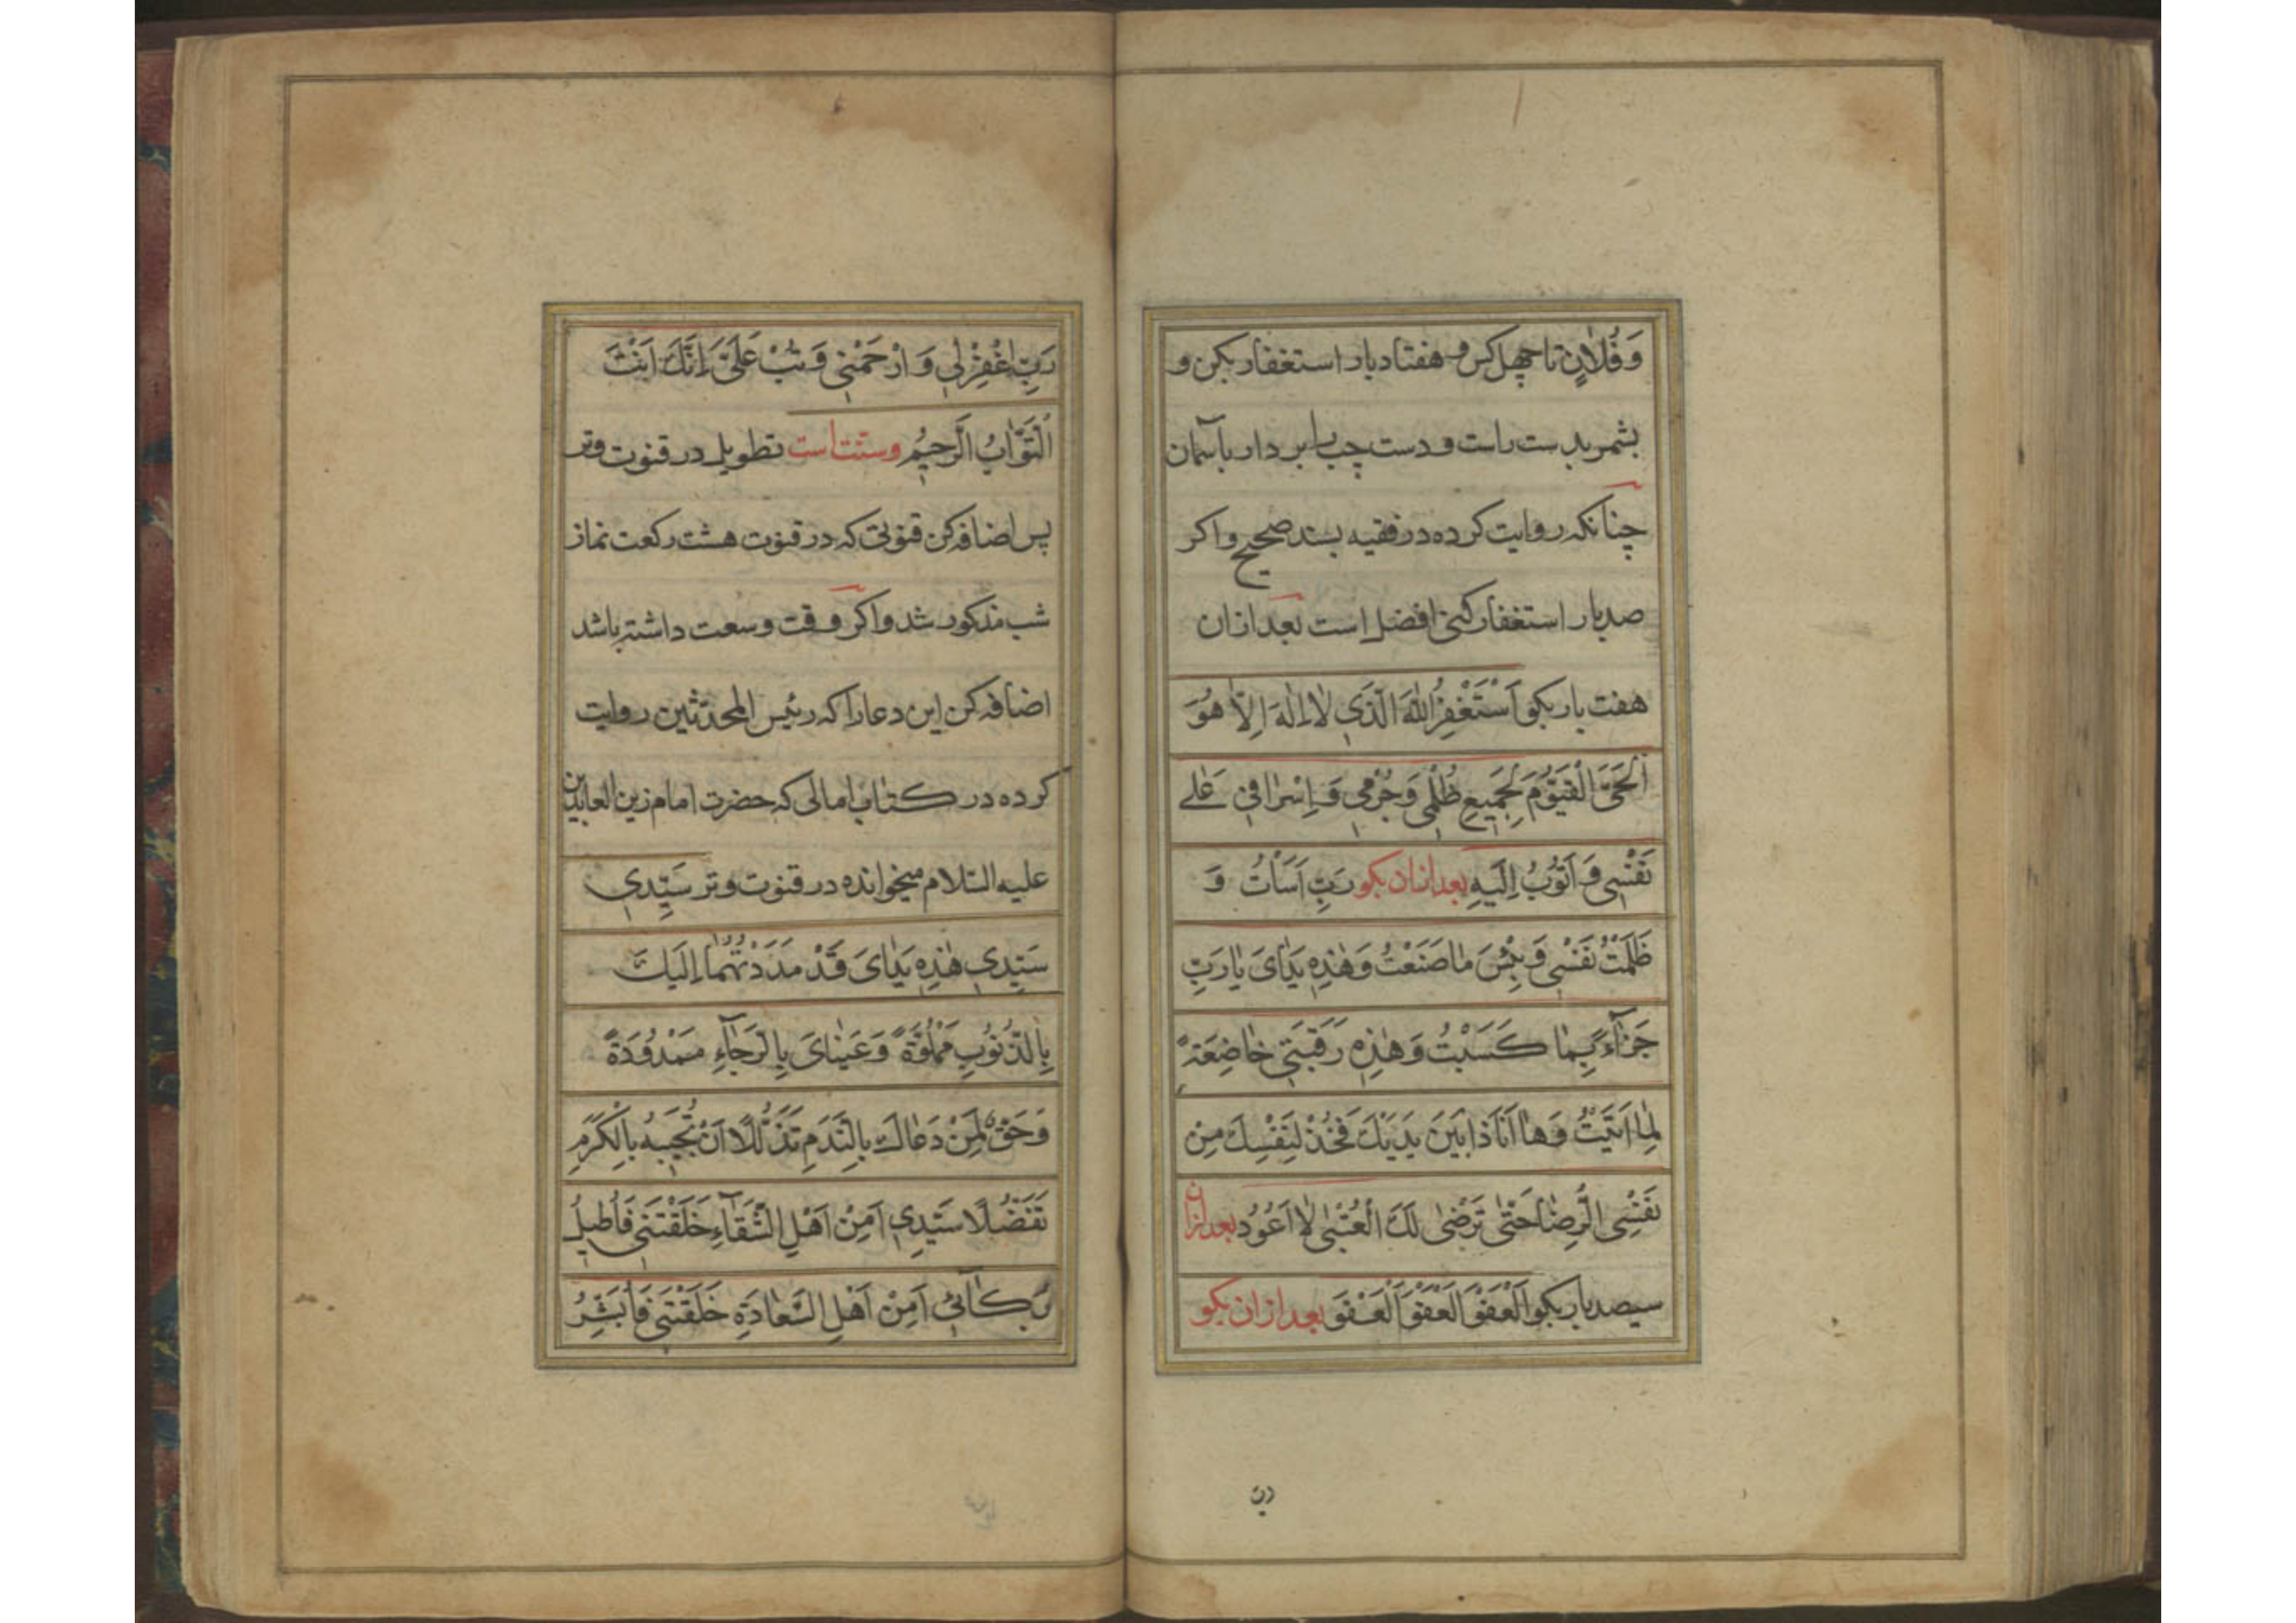 وَ فُلَانٍ تا چهل کس و هفتاد بار استغفار بکن و
بشمر بدست راست و دست چپ را بردار بآسمان
چنانکه روایت کرده در فقیه بسند صحیح و اکر
صد بار استغفار کنی افضل است بعد ازان
هفت بار بکو اَسْتَغْفِرُ اللّٰهَ الَّذِي لَا اِلٰهَ اِلَّا هُوَ
اَلْحَيَّ الْقَيُّوْمَ لِجَمِيعِ ظُلْمِي وَ جُرْمِي وَ اِسْرَافِي عَلَے
نَفْسِي وَ اَتُوبُ اِلَيْهِ بعد ازان بکو رَبِّ اَسَأْتُ وَ
ظَلَمْتُ نَفْسِي وَ بِئْسَ مَا صَنَعْتُ وَ هٰذِهِ يَدَايَ يَا رَبِّ
جَزَآءً بِمَا كَسَبْتُ وَ هٰذِهِ رَقَبَتِي خَاضِعَةً
لِمَا اَتَيْتُ وَ هَا اَنَا ذَا بَيْنَ يَدَيْكَ فَخُذْ لِنَفْسِكَ مِنْ
نَفْسِي الرِّضَا حَتّٰى تَرْضٰى لَكَ الْعُتْبٰى لَا اَعُوْدُ بعد ازان
سیصد بار بکو اَلْعَفْوَ اَلْعَفْوَ اَلْعَفْوَ بعد ازان بکو
رب
رَبِّ اغْفِرْ لِي وَ ارْحَمْنِي وَ تُبْ عَلَيَّ اِنَّكَ اَنْتَ
اَلتَّوَّابُ الرَّحِيمُ و سنّت است تطویل در قنوت وتر
پس اضافه کن قنوتی که در قنوت هشت رکعت نماز
شب مذکور شد و اکر وقت وسعت داشته باشد
اضافه کن این دعا را که رئیس المحدّثین روایت
کرده در کتاب امالی که حضرت امام زین العابدین
علیه السّلام میخوانده در قنوت وتر سَيِّدِي
سَيِّدِي هٰذِهِ يَدَايَ قَدْ مَدَدْتُهُمَا اِلَيْكَ
بِالذُّنُوبِ مَمْلُوَّةً وَ عَيْنَايَ بِالرَّجَآءِ مَمْدُودَةً
وَ حَقٌّ لِمَنْ دَعَاكَ بِالنَّدَمِ تَذَلُّلًا اَنْ تُجِيْبَهُ بِالْكَرَمِ
تَفَضُّلًا سَيِّدِي اَمِنْ اَهْلِ الشَّقَآءِ خَلَقْتَنِي فَاُطِيلُ
بُكَآئِي اَمِنْ اَهْلِ السَّعَادَةِ خَلَقْتَنِي فَاُبَشِّرُ